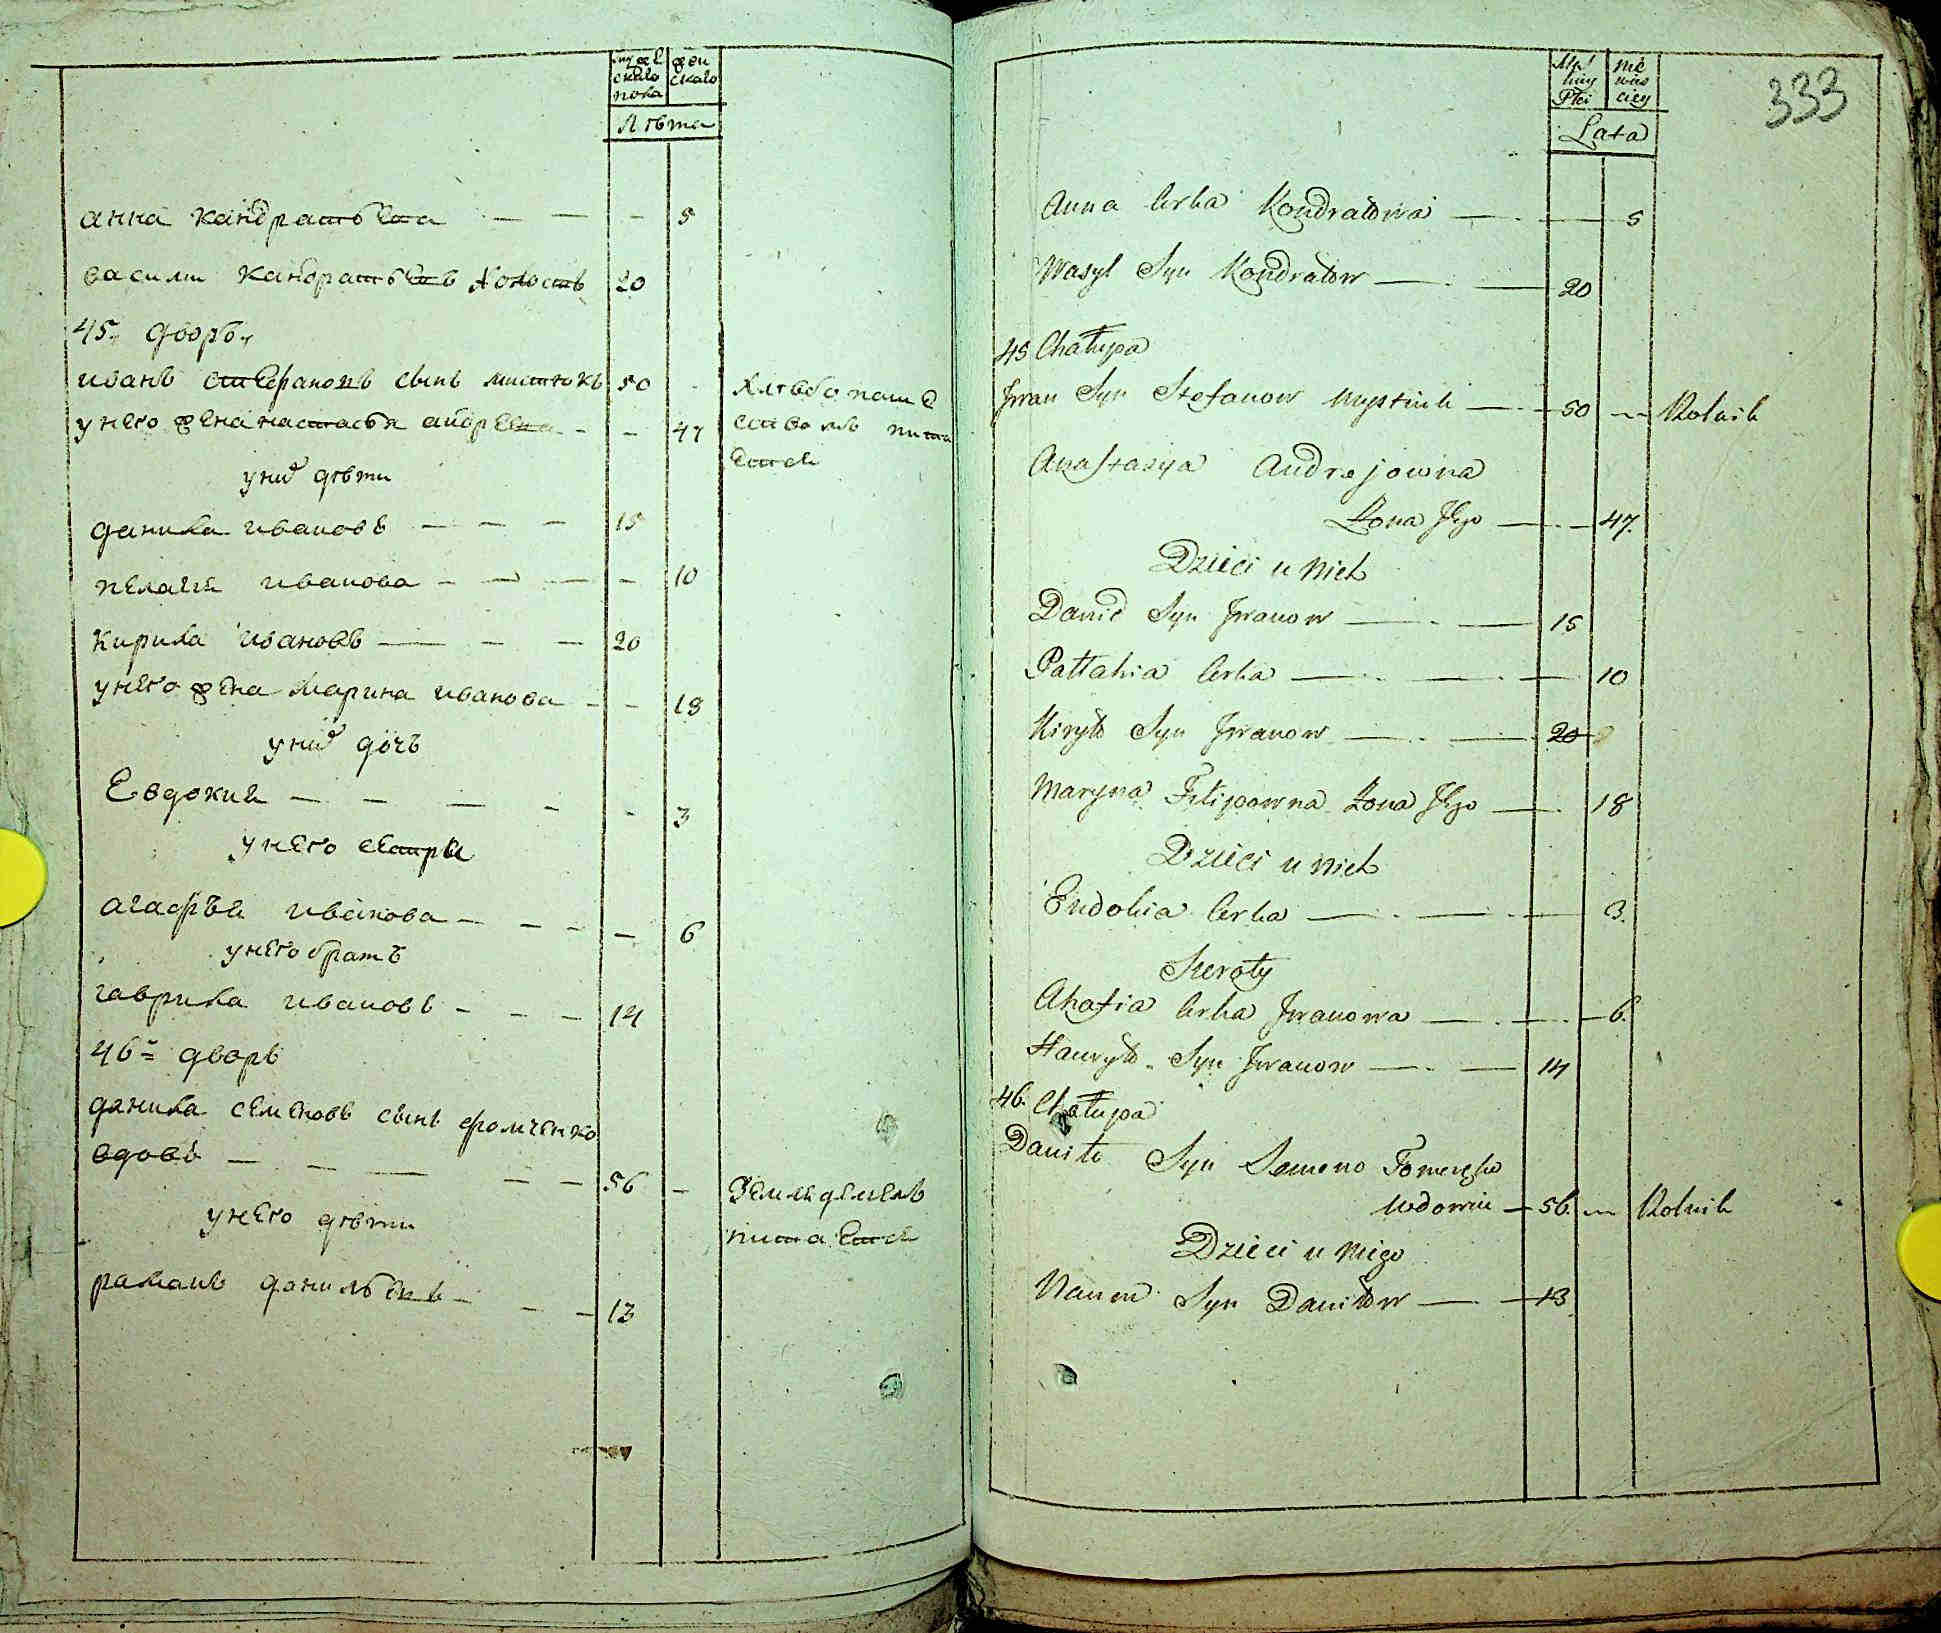 мужескаго пола
женскаго
Лѣта
анна кандратьева — — — 5
васили кандратьевъ холостъ 20
45. дворъ
иванъ стефановъ сынъ мистюкъ 50
хлѣбопаше
унего жена настасья андреева - - 47
ствомъ пита
ется
унихъ дѣти
данила ивановъ — — — 15
пелагия иванова — — — — 10
кирила ивановъ — — — 20
унего жена марина иванова - - 18
унихъ дочь
Евдокия — — — — - 3
унего сестра
агафья иванова — — — — 6
унего братъ
гаврила ивановъ — — — 14
46 дворъ
данила семеновъ сынъ фомченко
вдовъ — — — — — 56 —
Земледелемъ
унего дѣти
питается
раманъ данильевъ — — — 13
333
płci
Lata
Anna Corka Kondratowa — — 5
Wasyl Syn Kondratow — — 20
45 Chałupa
Jwan Syn Stefanow Mystiuk — 50 — Rolnik
Anastasya Andrejowna
Żona Jego — — 47.
Dzieci u Nich
Danił Syn Jwanow — — 15
Pałłahia Corka — — — 10
Kiryło Syn Jwanow — — 20
Maryna Filipowna Żona Jego — 18
Dzieci u Nich
Eudokia Corka — — — 3.
Sieroty
Ahafia Corka Jwanowa — — 6.
Hauryło Syn Jwanow — — 14
46. Chałupa
Daniło Syn Semena Fomenko
Wdowiec — 56. — Rolnik
Dzieci u Niego
Naum Syn Daniłow — 13.